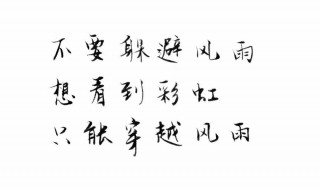 不要躲避风雨
想看到彩虹
只能穿越风雨